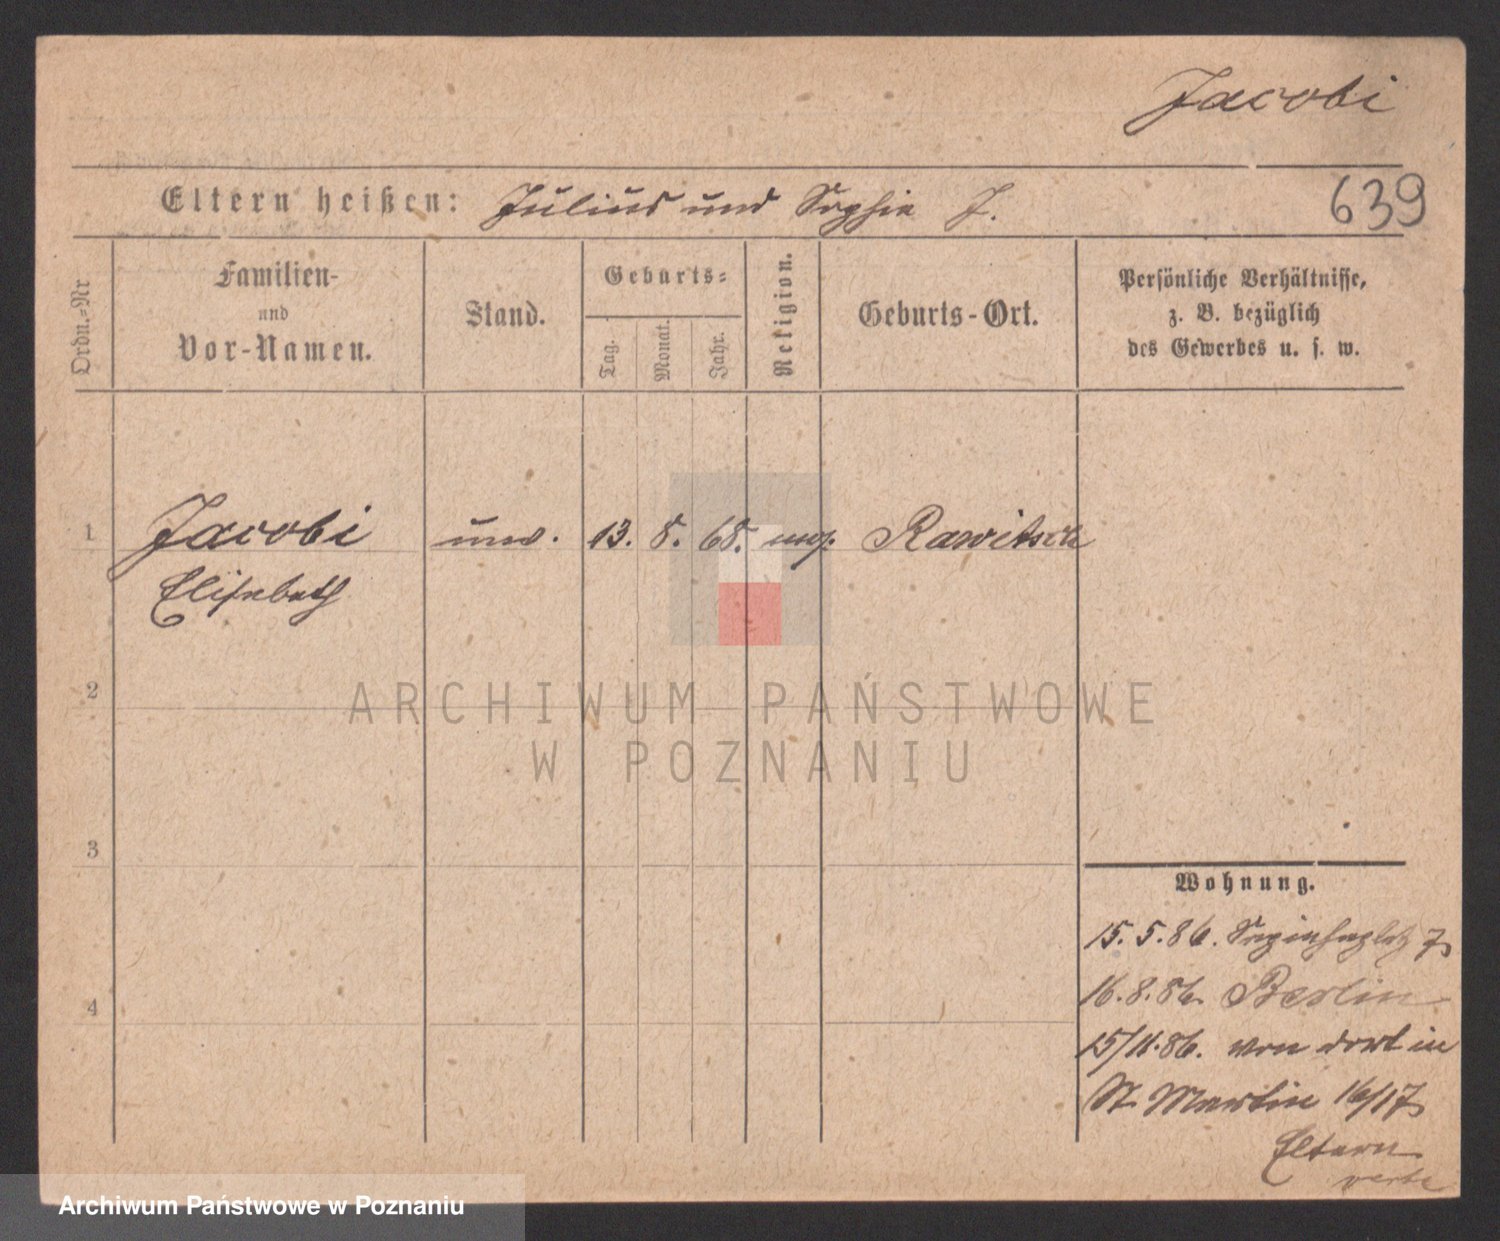 Jacobi
Eltern heißen: Julius und Sophie J.
639
Ordn.=Nr
Familien-
und
Vor-Namen.
Stand.
Geburts=
Tag.
Monat.
Jahr.
Religion.
Geburts-Ort.
Persönliche Verhältnisse,
z. B. bezüglich
des Gewerbes u. s. w.
1 Jacobi unv. 13. 8. 68. Rawitsch
Elisabeth
2
ARCHIWUM PAŃSTWOWE
W POZNANIU
3
Wohnung.
15. 5. 86. Sapiehaplatz 7
16. 8. 86. Berlin
4
15/11. 86. von dort in
St. Martin 16/17
Eltern
verte
Archiwum Państwowe w Poznaniu